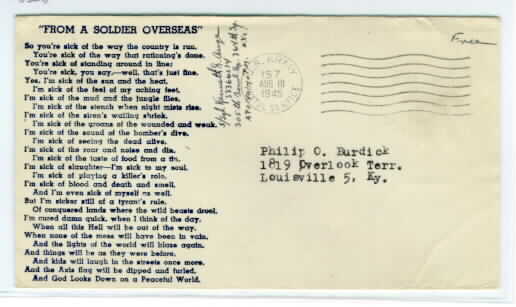 "FROM A SOLDIER OVERSEAS"
So you're sick of the way the country is run.
You're sick of the way that rationing's done.
You're sick of standing around in line;
You're sick, you say,—well, that's just fine.
Yes, I'm sick of the sun and the heat.
I'm sick of the feel of my aching feet.
I'm sick of the mud and the jungle flies.
I'm sick of the stench when night mists rise.
I'm sick of the siren's wailing shriek.
I'm sick of the groans of the wounded and weak.
I'm sick of the sound of the bomber's dive.
I'm sick of seeing the dead alive.
I'm sick of the roar and noise and din.
I'm sick of the taste of food from a tin.
I'm sick of slaughter—I'm sick to my soul.
I'm sick of playing a killer's role.
I'm sick of blood and death and smell.
And I'm even sick of myself as well.
But I'm sicker still of a tyrant's rule.
Of conquered lands where the wild beasts drool.
I'm cured damn quick, when I think of the day.
When all this Hell will be out of the way.
When none of the mess will have been in vain.
And the lights of the world will blaze again.
And things will be as they were before.
And kids will laugh in the streets once more.
And the Axis flag will be dipped and furled.
And God Looks Down on a Peaceful World.
Kenneth
ARMY
157
AUG
1945
POSTAL SERVICE
Free
Philip O. Burdick
1819 Overlook Terr.
Louisville 5, Ky.